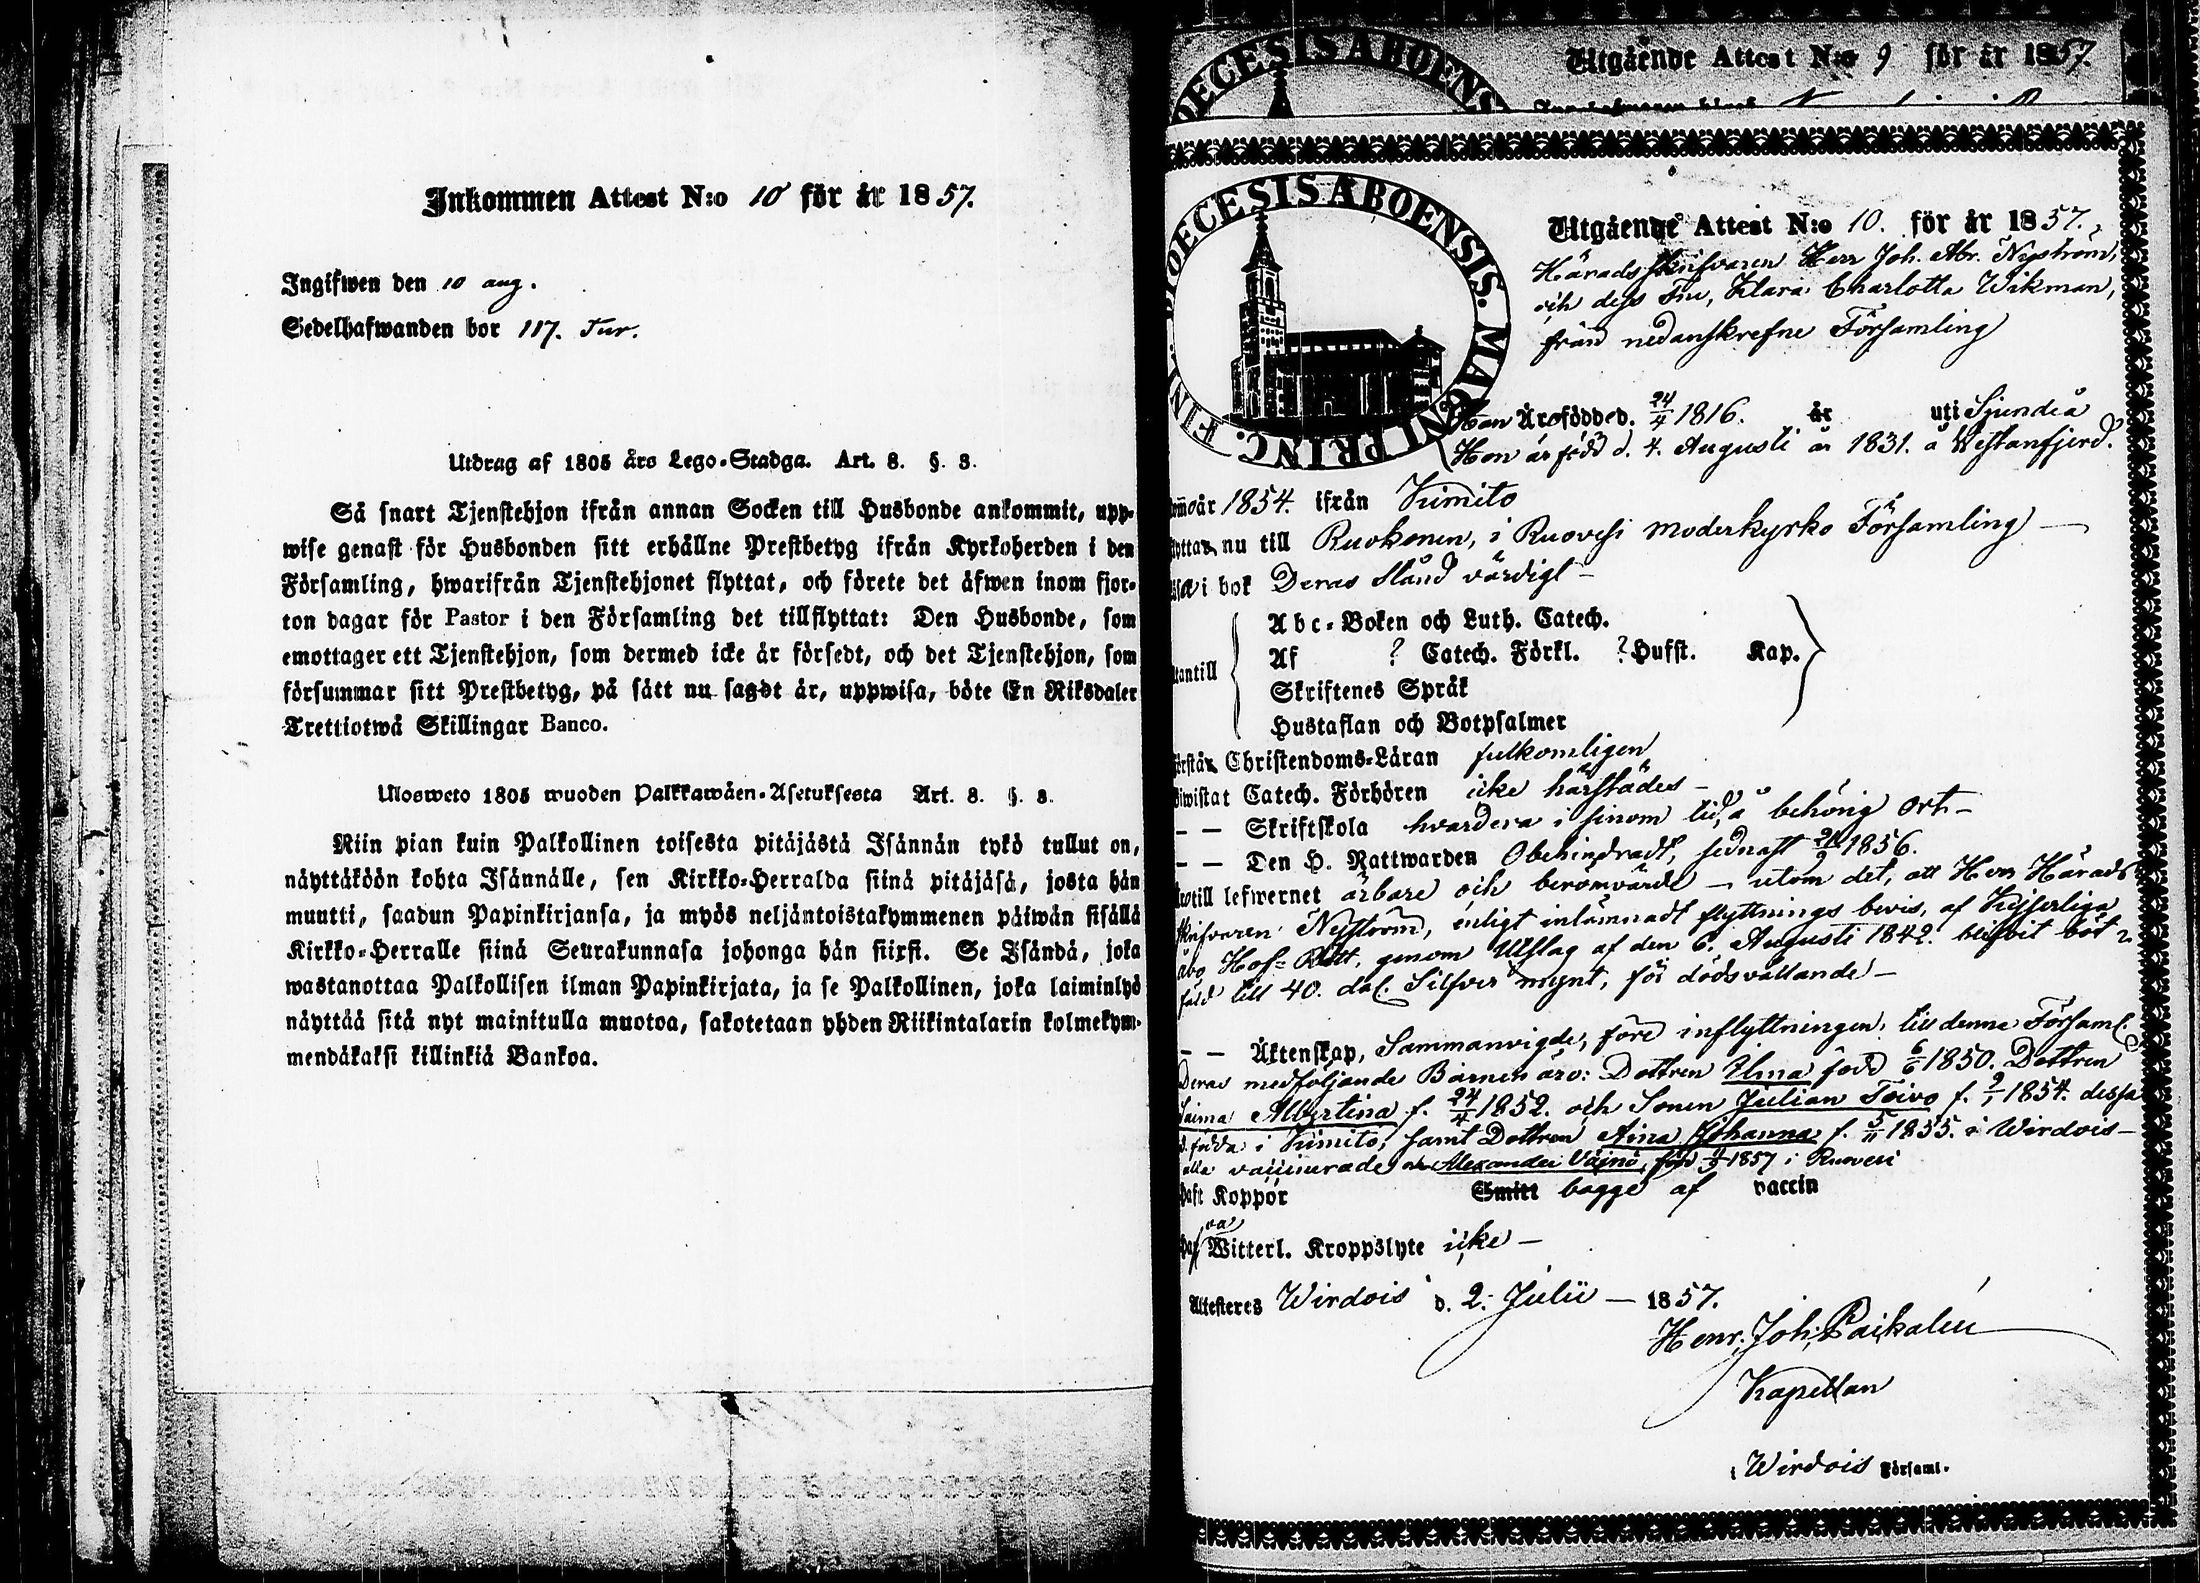 Inkommen Attest N:o 10 för år 1857.
Ingifwen den 10 aug.
Sedelhafwanden bor 117. Jur.
Utdrag af 1805 års Lego-Stadga. Art. 8. §. 3.
Så snart Tjenstehjon ifrån annan Socken till Husbonde ankommit, upp-
wise genast för Husbonden sitt erhållne Prestbetyg ifrån Kyrkoherden i den
Församling, hwarifrån Tjenstehjonet flyttat, och förete det äfwen inom fjor-
ton dagar för Pastor i den Församling det tillflyttat: Den Husbonde, som
emottager ett Tjenstehjon, som dermed icke är försedt, och det Tjenstehjon, som
försummar sitt Prestbetyg, på sätt nu sagdt är, uppwisa, böte En Riksdaler
Trettiotwå Skillingar Banco.
Ulosweto 1805 wuoden Palkkawäen-Asetuksesta Art. 8. §. 3.
Niin pian kuin Palkollinen toisesta pitäjästä Isännän tykö tullut on,
näyttäköön kohta Isännälle, sen Kirkko-Herralda siinä pitäjäsä, josta hän
muutti, saadun Papinkirjansa, ja myös neljäntoistakymmenen päiwän sisällä
Kirkko-Herralle siinä Seurakunnasa johonga hän siirsi. Se Isändä, joka
wastanottaa Palkollisen ilman Papinkirjata, ja se Palkollinen, joka laiminlyö
näyttää sitä nyt mainitulla muotoa, sakotetaan yhden Riikintalarin kolmekym-
mendäkaksi killinkiä Bankoa.
DIOECESIS ABOENS
Utgående Attest N:o 9 för år 1857.
DIOECESIS ABOENSIS. MAGNI PRINC. FINL.
Utgående Attest N:o 10. för år 1857.
Häradsskrifvaren Herr Joh. Abr. Nyström,
och dess Fru, Klara Charlotta Wikman,
från nedanskrefne Församling
Han Är född d. 24/4 1816. år uti Sjundeå
Hon är född d. 4. Augusti år 1831. å Westanfjerd.
år 1854. ifrån Kimito
nu till Ruokonen, i Ruovesi moderkyrko Församling —
i bok Deras Stånd värdigt —
Abc-Boken och Luth. Catech.
Af ? Catech. Förkl. ? Husst. Kap.
Skriftenes Språk
Hustaflan och Botpsalmer
Christendoms-Läran fulkomligen
Catech. Förhören icke härstädes —
— — Skriftskola hvardera i sinom tid, å behörig ort —
— — Den H. Nattwarden Obehindradt, sednast 1856.
till lefwernet ärbare och berömvärde — utom det, att Herr Härads
skrifvaren Nyström, enligt inlämnadt flyttnings bevis, af Kejserliga
Åbo Hof-Rätt, genom Utslag af den 6. Augusti 1842. blifvit böt
fäld till 40. dal. Silfver mynt, för dödsvållande —
— — Äktenskap, Sammanvigde, före inflyttningen till denna Församl.
Deras medföljande Barnen äro: Dottren Elma född 6/6 1850. Dottren
Saima Albertina f. 24/4 1852. och Sonen Julian Toivo f. 1854. dessa
födda i Kimito, samt Dottren Aina Johanna f. 5/11 1855. i Wirdois —
alla vaccinerade och Alexander Väinö, född 1857 i Ruovesi
haft Koppor Smitt bagge af vaccin
Witterl. Kroppslyte icke —
Attesteras Wirdois d. 2. Julii — 1857.
Henr. Joh. Paikalén
Kapellan
i Wirdois Församl.